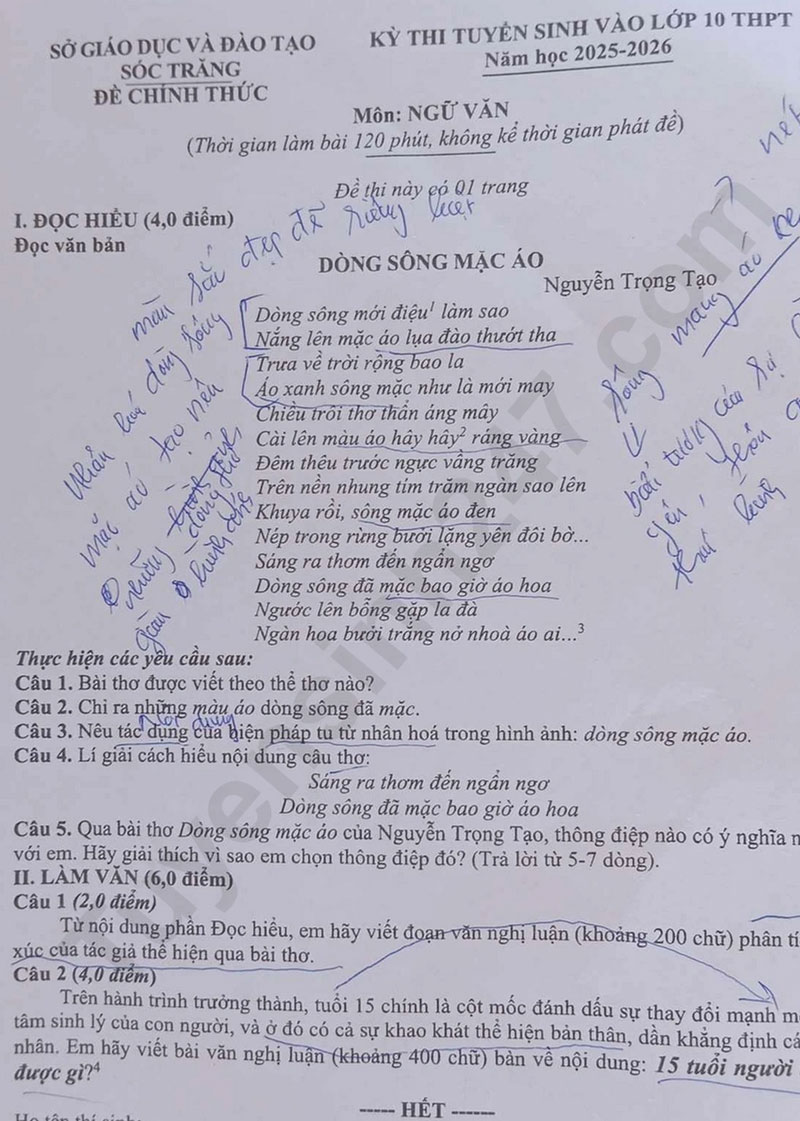 SỞ GIÁO DỤC VÀ ĐÀO TẠO
SÓC TRĂNG
ĐỀ CHÍNH THỨC
KỲ THI TUYỂN SINH VÀO LỚP 10 THPT
Năm học 2025-2026
Môn: NGỮ VĂN
(Thời gian làm bài 120 phút, không kể thời gian phát đề)
Đề thi này có 01 trang
I. ĐỌC HIỂU (4,0 điểm)
Đọc văn bản
màu sắc đẹp đẽ riêng biệt
DÒNG SÔNG MẶC ÁO
Nguyễn Trọng Tạo
Dòng sông mới điệu¹ làm sao
Nắng lên mặc áo lụa đào thướt tha
Trưa về trời rộng bao la
Áo xanh sông mặc như là mới may
Chiều trôi thơ thẩn áng mây
Cài lên màu áo hây hây² ráng vàng
Đêm thêu trước ngực vầng trăng
Trên nền nhung tím trăm ngàn sao lên
Khuya rồi, sông mặc áo đen
Nép trong rừng bưởi lặng yên đôi bờ...
Sáng ra thơm đến ngẩn ngơ
Dòng sông đã mặc bao giờ áo hoa
Ngước lên bỗng gặp la đà
Ngàn hoa bưởi trắng nở nhoà áo ai...³
Nhân hoá dòng sông
mặc áo tạo nên
sông mang áo
biểu tượng của sự
Thực hiện các yêu cầu sau:
Câu 1. Bài thơ được viết theo thể thơ nào?
Câu 2. Chỉ ra những màu áo dòng sông đã mặc.
Nội dung
Câu 3. Nêu tác dụng của biện pháp tu từ nhân hoá trong hình ảnh: dòng sông mặc áo.
Câu 4. Lí giải cách hiểu nội dung câu thơ:
Sáng ra thơm đến ngẩn ngơ
Dòng sông đã mặc bao giờ áo hoa
Câu 5. Qua bài thơ Dòng sông mặc áo của Nguyễn Trọng Tạo, thông điệp nào có ý nghĩa
với em. Hãy giải thích vì sao em chọn thông điệp đó? (Trả lời từ 5-7 dòng).
II. LÀM VĂN (6,0 điểm)
Câu 1 (2,0 điểm)
Từ nội dung phần Đọc hiểu, em hãy viết đoạn văn nghị luận (khoảng 200 chữ) phân
xúc của tác giả thể hiện qua bài thơ.
Câu 2 (4,0 điểm)
Trên hành trình trưởng thành, tuổi 15 chính là cột mốc đánh dấu sự thay đổi mạnh
tâm sinh lý của con người, và ở đó có cả sự khao khát thể hiện bản thân, dần khẳng định
nhân. Em hãy viết bài văn nghị luận (khoảng 400 chữ) bàn về nội dung: 15 tuổi người
được gì?⁴
----- HẾT ------
Họ tên thí sinh:
Tuyensinh247.com